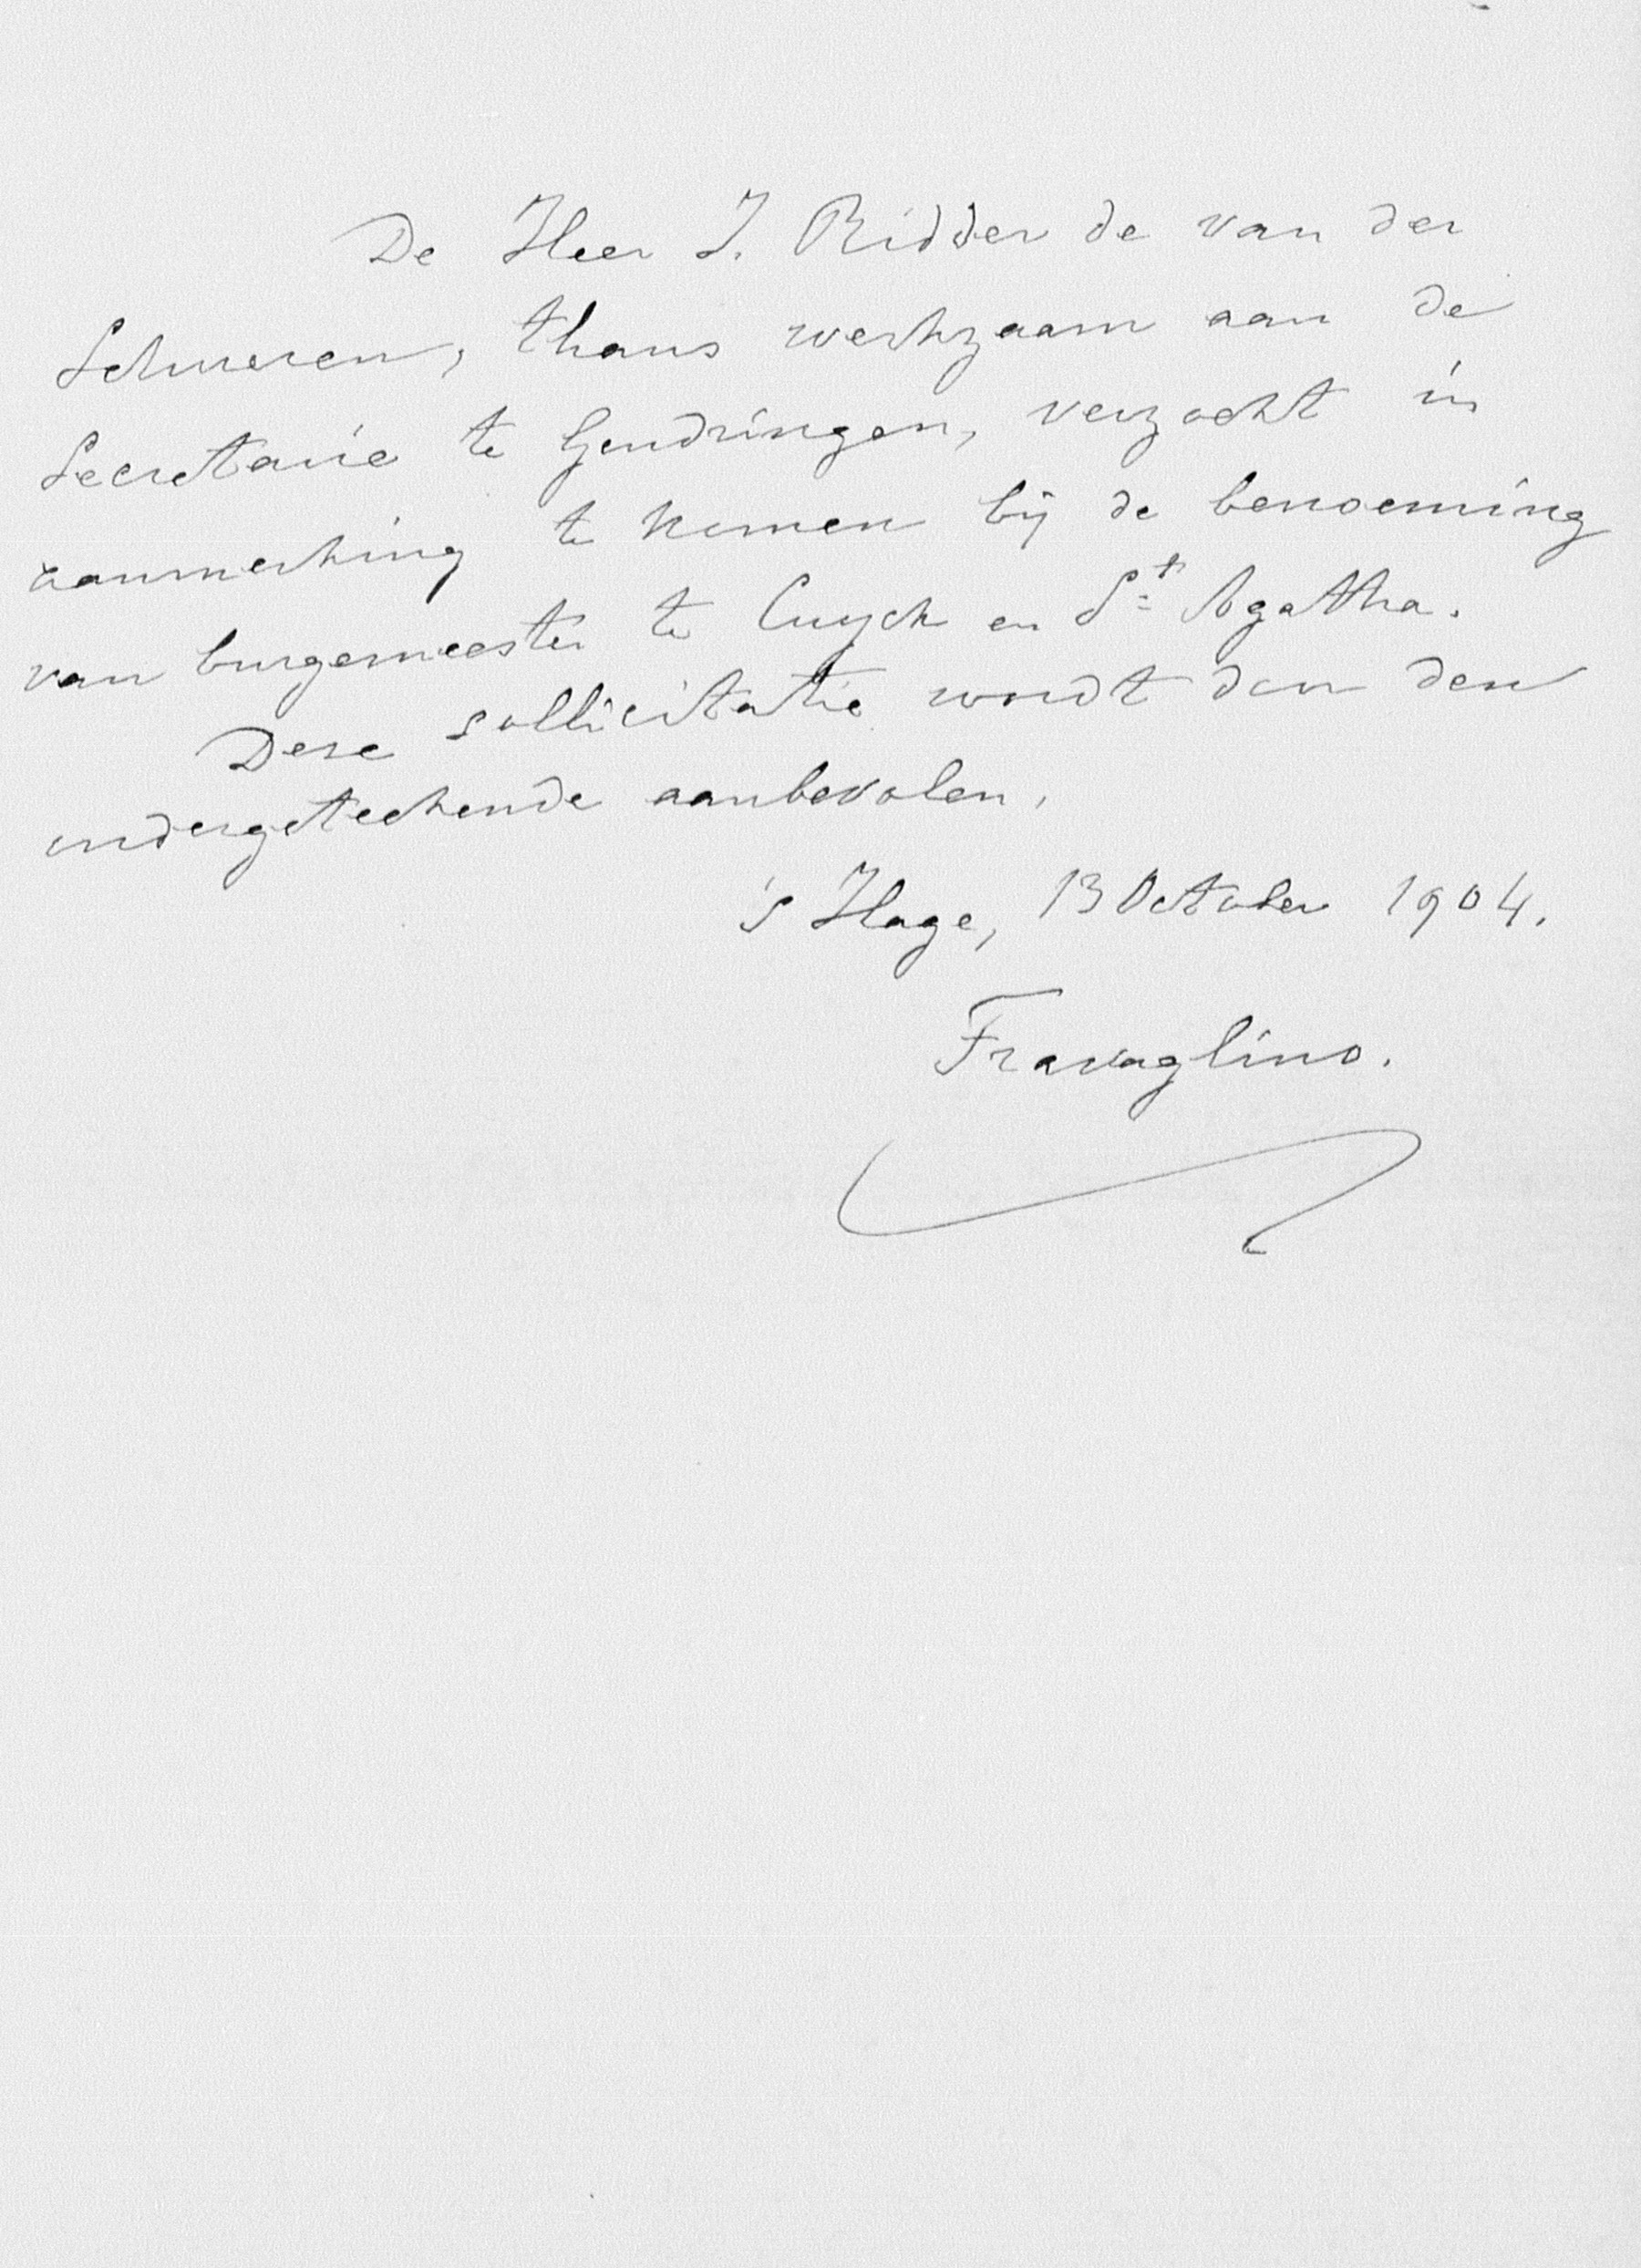 De Heer J. Ridder de van der
Schueren, thans werkzaam aan de
Secretarie te Gendringen, verzocht in
aanmerking te komen bij de benoeming
van burgemeester te Cuyck en St Agatha.
Deze sollicitatie wordt door den
ondergeteekende aanbevolen.
's Hage, 13 October 1904.
Travaglino.